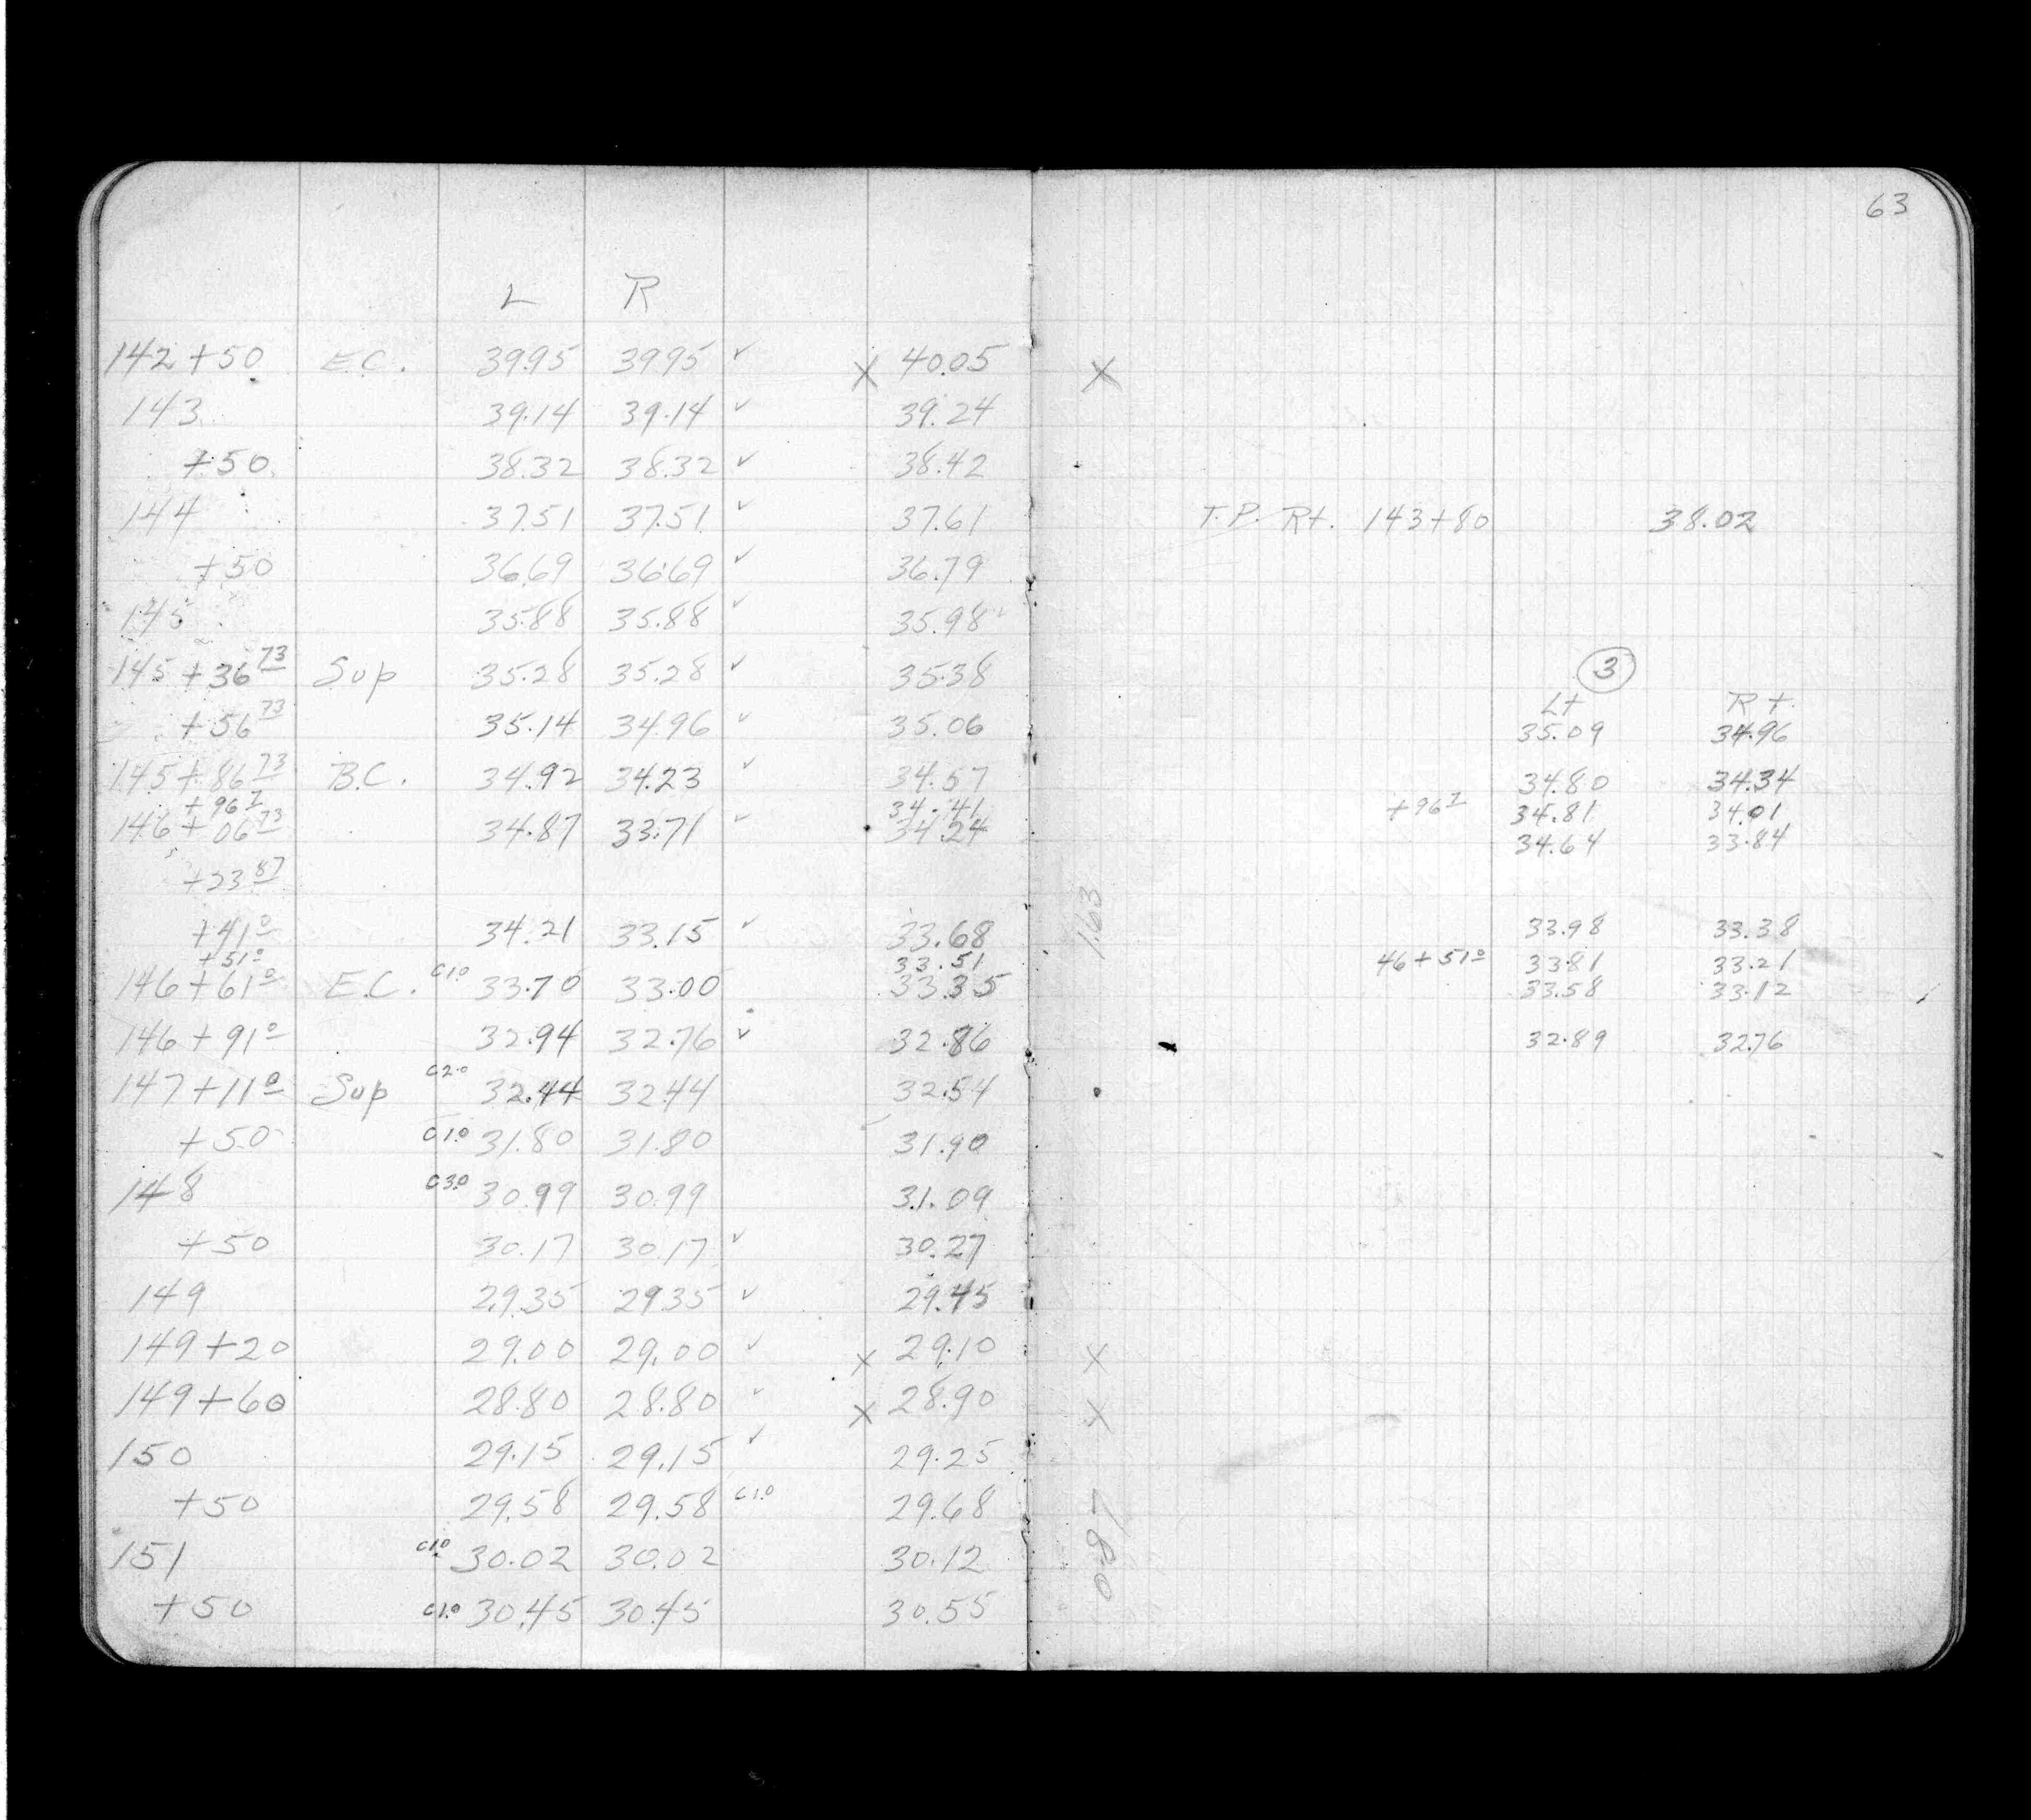 63
L R
142+50 E.C. 39.95 39.95 ✓ X 40.05 X
143 39.14 39.14 ✓ 39.24
+50 38.32 38.32 ✓ 38.42
144 37.51 37.51 ✓ 37.61 T.P. Rt. 143+80 38.02
+50 36.69 36.69 ✓ 36.79
145 35.88 35.88 ✓ 35.98
145+36 73 Sup 35.28 35.28 ✓ 35.38 3
Lt Rt.
+56 73 35.14 34.96 ✓ 35.06 35.09 34.96
145+86 73 B.C. 34.92 34.23 ✓ 34.57 34.80 34.34
+96 7 34.41 +96 7 34.81 34.01
146+06 73 34.87 33.71 ✓ 34.24 34.64 33.84
+23 87
+41 0 34.21 33.15 ✓ 33.68 1.63 33.98 33.38
+51 0 33.51 46+51 0 33.81 33.21
146+61 0 E.C. C1.0 33.70 33.00 33.35 33.58 33.12
146+91 0 32.94 32.76 ✓ 32.86 32.89 32.76
147+11 0 Sup C2.0 32.44 32.44 32.54
+50 C1.0 31.80 31.80 31.90
148 C3.0 30.99 30.99 31.09
+50 30.17 30.17 ✓ 30.27
149 29.35 29.35 ✓ 29.45
149+20 29.00 29.00 ✓ X 29.10 X
149+60 28.80 28.80 ✓ X 28.90 X
150 29.15 29.15 ✓ 29.25
+50 29.58 29.58 C1.0 29.68
151 C1.0 30.02 30.02 30.12 0.87
+50 C1.0 30.45 30.45 30.55